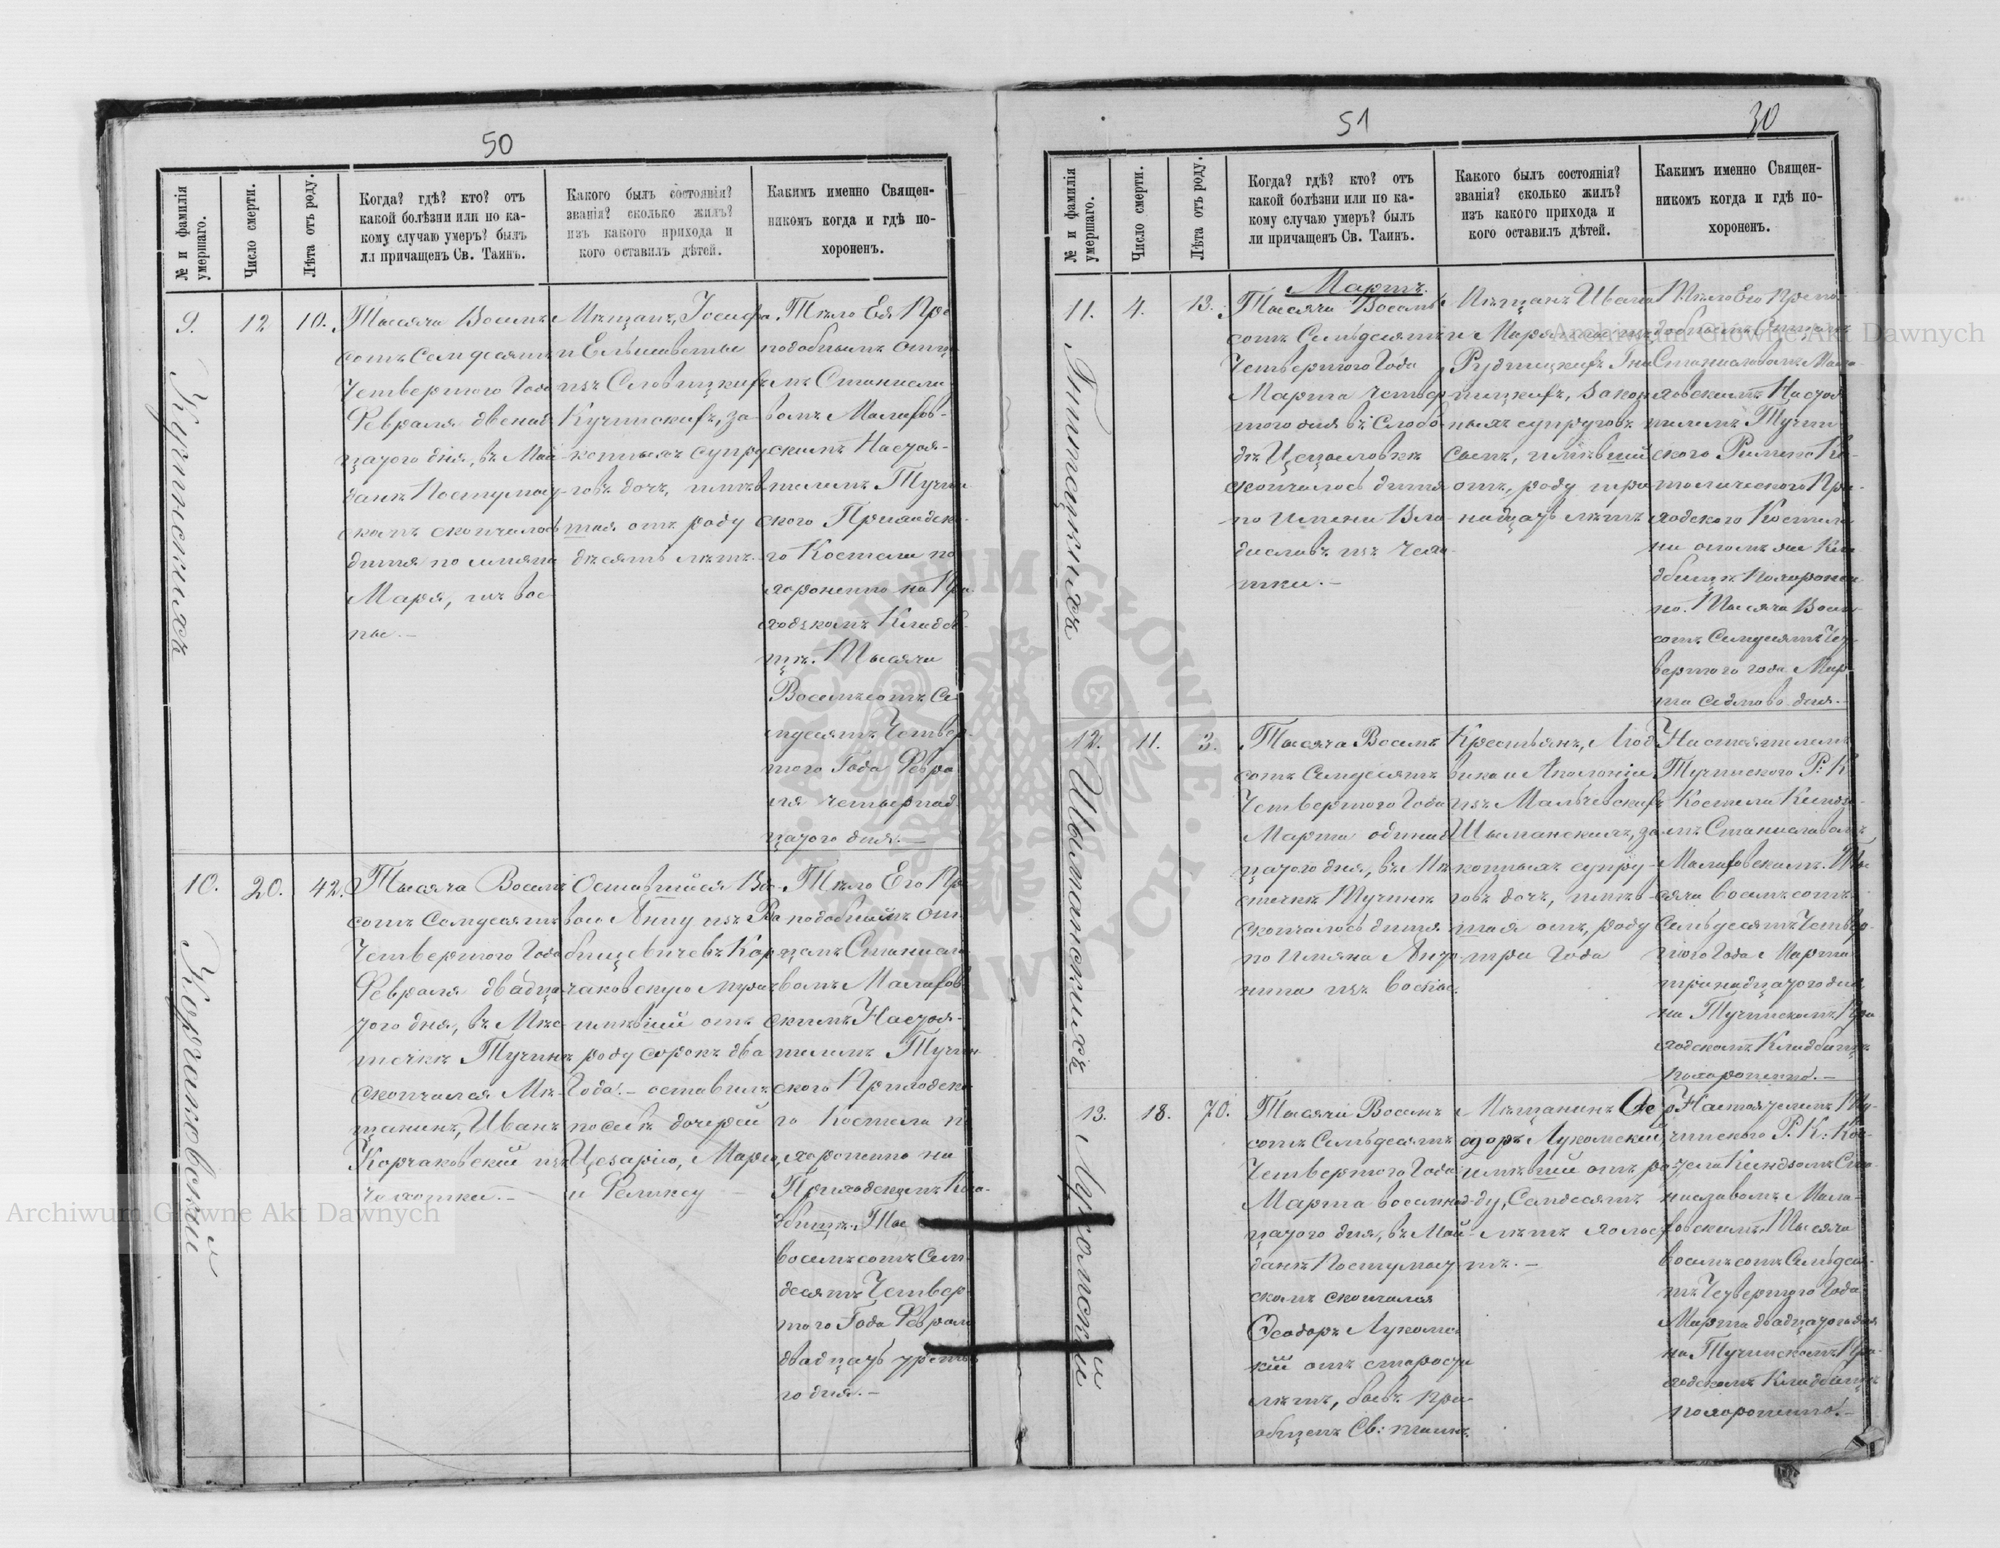 50
№ и фамилія умершаго.
Число смерти.
Лѣта отъ роду.
Когда? гдѣ? кто? отъ
какой болѣзни или по ка-
кому случаю умеръ? былъ
ли причащенъ Св. Таинъ.
Какого былъ состоянія?
званія? сколько жилъ?
изъ какого прихода и
кого оставилъ дѣтей.
Какимъ именно Священ-
никомъ когда и гдѣ по-
хороненъ.
9.
Кучинскихъ
12
10.
Тысяча Восемь
сотъ Семдесятъ
Четвертого Года
Февраля двенад
цатого дня, въ Май
данѣ Постумоу
скомъ скончалось
дитя по имяни
Марія, изъ вос
пы.—
Мѣщанъ, Іосифа
и Ельисаветы
изъ Словицкихъ
Кучинскихъ, за
конныхъ супру
говъ дочь, имѣв
шая отъ роду
дѣсять лѣтъ.
Тѣло Ея Пре
подобнымъ Отц
емъ Станисла
вомъ Малахов-
скимъ Настоя-
телемъ Тучин
ского Приходско
го Костела по
хоронено на При
ходскомъ Кладби
щѣ. Тысяча
Восемьсотъ Се
мдесятъ Четвер
того Года Февра
ля четырнад
цатого дня.—
10.
Корчаковскій
20.
42.
Тысяча Восемь
сотъ Семдесятъ
Четвертого Года
Февраля двадца
того дня, въ Мѣс
течкѣ Тучинѣ
скончался Мѣ
щанинъ, Иванъ
Корчаковскій изъ
чахотки.—
Оставшійся Вдо
вою Анну изъ Ра
бцевичевъ Кор
чаковскую мужъ
имѣвшій отъ
роду сорокъ два
Года.— оставилъ
по себѣ дочерей
Цезарію, Марію,
и Феликсу —
Тѣло Его Пре
подобнымъ Отц
емъ Станисла
вомъ Малахов
скимъ Настоя-
телемъ Тучин
ского Приходско
го Костела по
хоронено на
Приходскомъ Кла-
дбищѣ. Тыс
восемьсотъ Сем
десятъ Четвер
того Года Феврал
двадцать трет
го дня.—
51
30
№ и фамилія умершаго.
Число смерти.
Лѣта отъ роду.
Когда? гдѣ? кто? отъ
какой болѣзни или по ка-
кому случаю умеръ? былъ
ли причащенъ Св. Таинъ.
Какого былъ состоянія?
званія? сколько жилъ?
изъ какого прихода и
кого оставилъ дѣтей.
Какимъ именно Священ-
никомъ когда и гдѣ по-
хороненъ.
Мартъ.
11.
4.
13.
Тысяча Восемь
сотъ Семьдесятъ
Четвертого Года
Марта четвер
того дня въ Слобо
дѣ
скончалось дитя
по имени Вла
диславъ изъ Чехо
тки.—
Мѣщанъ Ивана
и Маріянны изъ
Рудницкихъ
законныхъ супруговъ
сынъ, имѣвшій
отъ, роду три
надцать лѣтъ
Тѣло Его Препо-
добнымъ Отцемъ
Станиславомъ Мала-
ховскимъ Настоя
телемъ Тучин
ского Римско Ка-
толического При
ходского Костела
дбищѣ похороне
но. Тысяча Восем
сотъ Семдесятъ Чет-
вертого года Мар-
та седмого дня.—
12.
Шиманскихъ
11.
3.
Тысяча Восемь
сотъ Семдесятъ
Четвертого Года
Марта одинад
цатого дня, въ Мѣ
стечкѣ Тучинѣ
скончалось дитя
по Имяни Анто
нина изъ воспы.
Крестьянъ, Люд
вика и Аполоніи
изъ Мальчевскихъ
Шиманскихъ, за
конныхъ супру-
говъ дочь, имѣв-
шая отъ, роду
три Года
Настоятелемъ
Тучинского Р: К
Костела Ксендзо-
мъ Станиславомъ
Малаховскимъ. Ты
сяча восемьсотъ
Семьдесятъ Четвер-
того Года Марта
тринадцатого дня
на Тучинскомъ При
ходскомъ Кладбищѣ
похоронено.—
13.
Лукомскій
18.
70.
Тысяча Восемь
сотъ Семьдесятъ
Четвертого Года
Марта восемнад-
цатого дня, въ Май
данѣ Постумоу
скомъ скончался
Ѳеодоръ Лукомс
кій отъ старости
лѣтъ, бывъ При
общенъ Св: таинъ.
Мѣщанинъ Ѳе
одоръ Лукомскій,
имѣвшій отъ ро
ду, Семдесятъ
лѣтъ холост
тъ.—
Настоятелемъ Ту-
чинского Р. К: Кос-
тела Ксендзомъ Ста-
ниславомъ Мала-
ховскимъ Тысяча
восемьсотъ Семьдеся-
тъ Четвертого Года
Марта двадцатого дня
на Тучинскомъ При-
ходскомъ Кладбищѣ
похоронено.—
Archiwum Główne Akt Dawnych
Archiwum Główne Akt Dawnych
ARCHIWUM GŁÓWNE AKT DAWNYCH